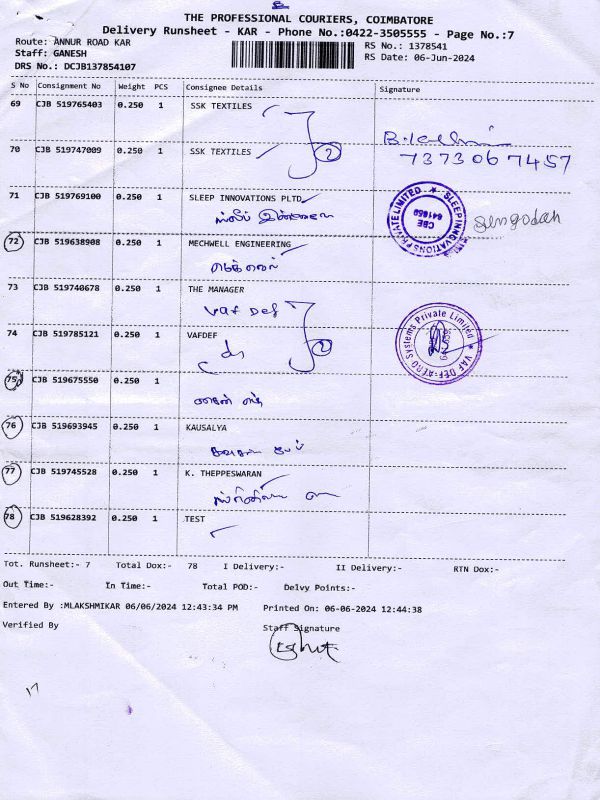 THE PROFESSIONAL COURIERS, COIMBATORE
Delivery Runsheet - KAR - Phone No.:0422-3505555 - Page No.:7
Route: ANNUR ROAD KAR
RS No.: 1378541
Staff: GANESH
RS Date: 06-Jun-2024
DRS No.: DCJB137854107
S No Consignment No Weight PCS Consignee Details Signature
69 CJB 519765403 0.250 1 SSK TEXTILES
70 CJB 519747009 0.250 1 SSK TEXTILES 2
7373067457
71 CJB 519769100 0.250 1 SLEEP INNOVATIONS PLTD
SLEEP INNOVATIONS PRIVATE LIMITED CBE 641659
Sengodan
72 CJB 519638908 0.250 1 MECHWELL ENGINEERING
73 CJB 519740678 0.250 1 THE MANAGER
Vaf Def
74 CJB 519785121 0.250 1 VAFDEF 2
VAF DEF-AERO Systems Private Limited
75 CJB 519675550 0.250 1
76 CJB 519693945 0.250 1 KAUSALYA
77 CJB 519745528 0.250 1 K. THEPPESWARAN
78 CJB 519628392 0.250 1 TEST
Tot. Runsheet:- 7 Total Dox:- 78 I Delivery:- II Delivery:- RTN Dox:-
Out Time:- In Time:- Total POD:- Delvy Points:-
Entered By :MLAKSHMIKAR 06/06/2024 12:43:34 PM Printed On: 06-06-2024 12:44:38
Verified By Staff Signature
17